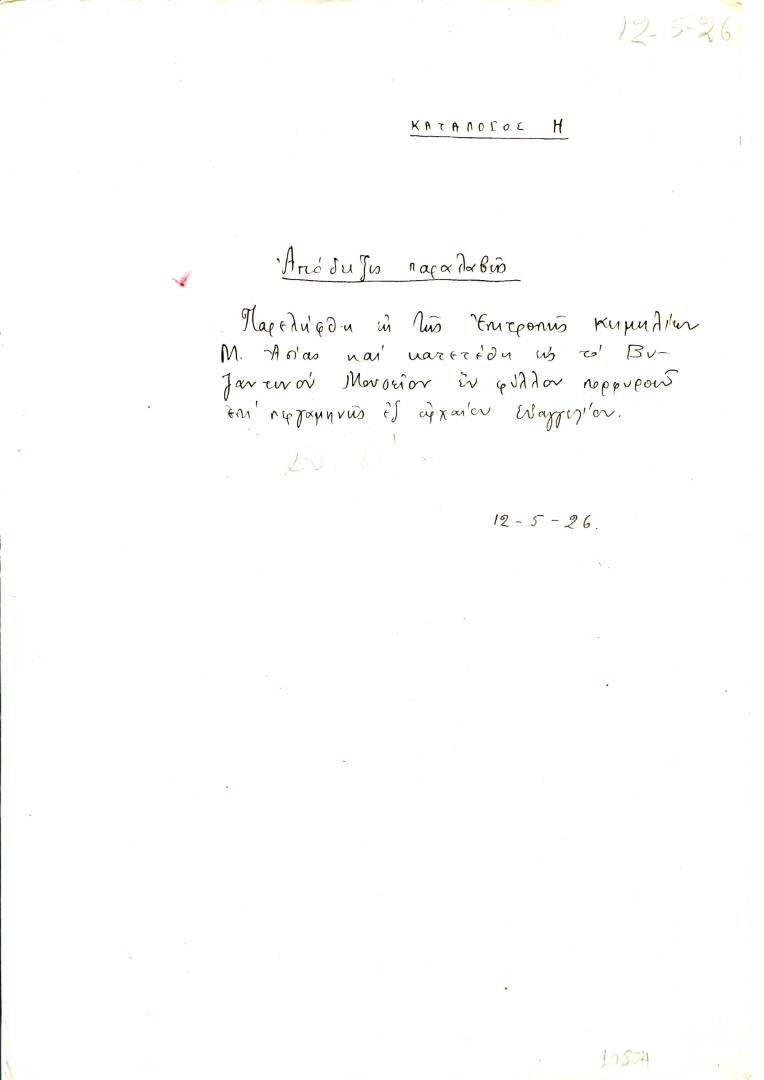 12-5-26
ΚΑΤΑΛΟΓΟΣ Η
Ἀπόδειξις παραλαβῆς
Παρελήφθη ἐκ τῆς Ἐπιτροπῆς Κειμηλίων
Μ. Ἀσίας καί κατετέθη εἰς τό Βυ-
ζαντινόν Μουσεῖον ἕν φύλλον πορφυροῦ
ἐπί περγαμηνῆς ἐξ ἀρχαίου Εὐαγγελίου.
12-5-26.